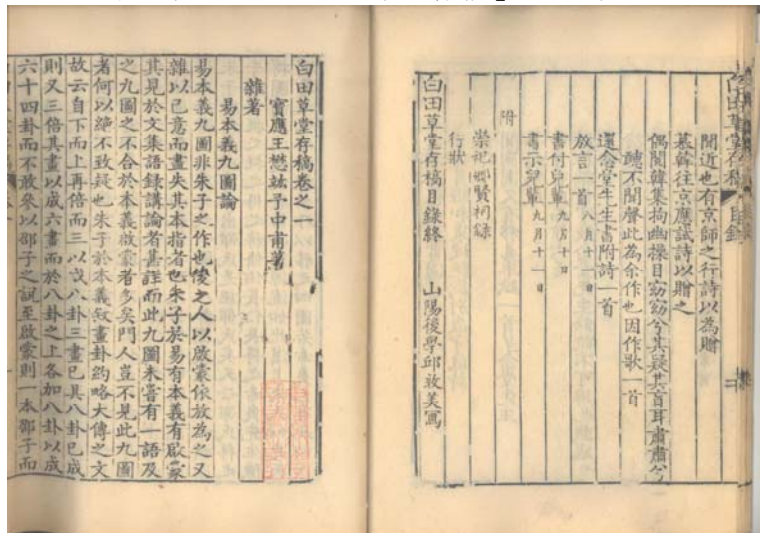 白田草堂存稿 目錄
聞近也有京師之行詩以為贈
慕韓往京應試詩以贈之
偶閱韓集拘幽操目窈窈兮其凝其盲耳肅肅兮
聽不聞聲此為余作也因作歌一首
還念堂先生書附詩一首
放言一首八月十一日
書付兒輩九月十日
書示兒輩九月十一日
附
崇祀鄉賢祠錄
行狀
白田草堂存稿目錄終 山陽後學邱敦美寫
白田草堂存稿卷之一
寶應王懋竑予中甫著
雜著
易本義九圖論
易本義九圖非朱子之作也後之人以啟蒙依放為之又
雜以己意而盡失其本指者也朱子於易有本義有啟蒙
其見於文集語錄講論者甚詳而此九圖未嘗有一語及
之九圖之不合於本義啟蒙者多矣門人豈不見此九圖
者何以絕不致疑也朱子於本義敘畫卦約略大傳之文
故云自下而上再倍而三以成八卦三畫已具八卦已成
則又三倍其畫以成六畫而於八卦之上各加八卦以成
六十四卦而不敢參以邵子之說至啟蒙則一本邵子而